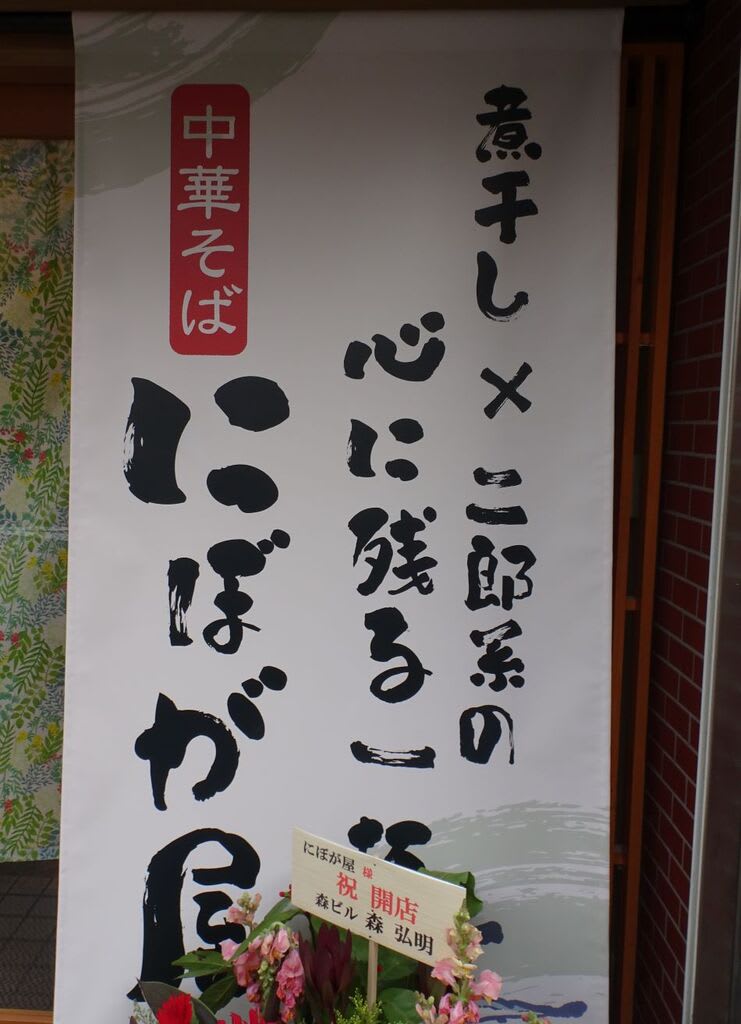 煮干し×二郎系の
心に残る一杯
中華そば
にぼが屋
にぼが屋 様
祝 開店
森ビル 森 弘明